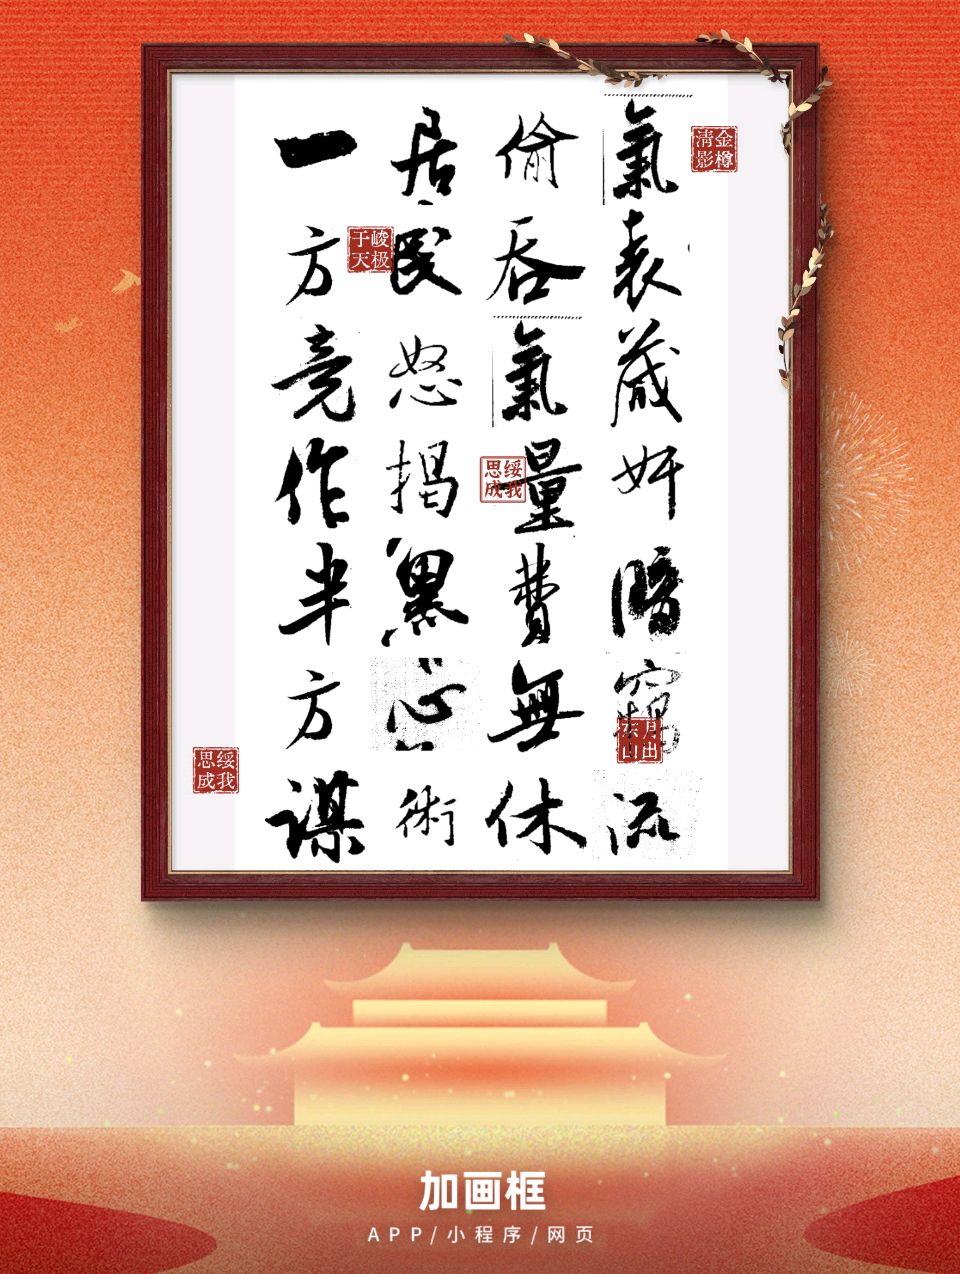 氣表藏奸暗竊流
偷吞氣量費無休
居民怒揭黑心術
一方竟作半方謀
金樽清影
峻极于天
绥我思成
月出东山
绥我思成
加画框
APP/小程序/网页